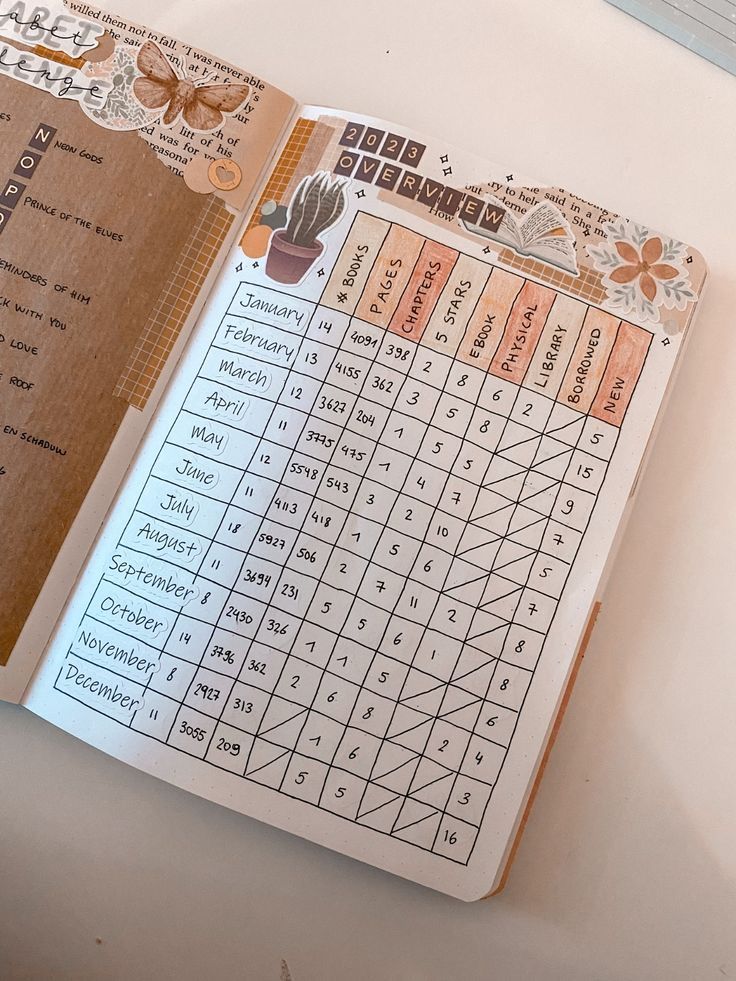 ABET
abet
lenge
ENGE
willed them not to fall. "I was never able
she said
N NEON GODS
O
P PRINCE OF THE ELVES
EMINDERS OF HIM
CK WITH YOU
D LOVE
E ROOF
EN SCHADUW
2023
OVERVIEW
# BOOKS PAGES CHAPTERS 5 STARS EBOOK PHYSICAL LIBRARY BORROWED NEW
January 14 4091 398 2 8 6 2 5
February 13 4155 362 3 5 8 15
March 12 3627 204 1 5 5 9
April 11 3775 475 1 4 7 7
May 12 5548 543 3 2 10 5
June 11 4113 418 1 5 6 7
July 18 5927 506 2 7 11 2 8
August 11 3694 231 5 5 6 1 8
September 8 2430 326 1 1 5 6
October 14 3796 362 2 6 8 2 4
November 8 2927 313 1 6 3
December 11 3055 209 5 5 16